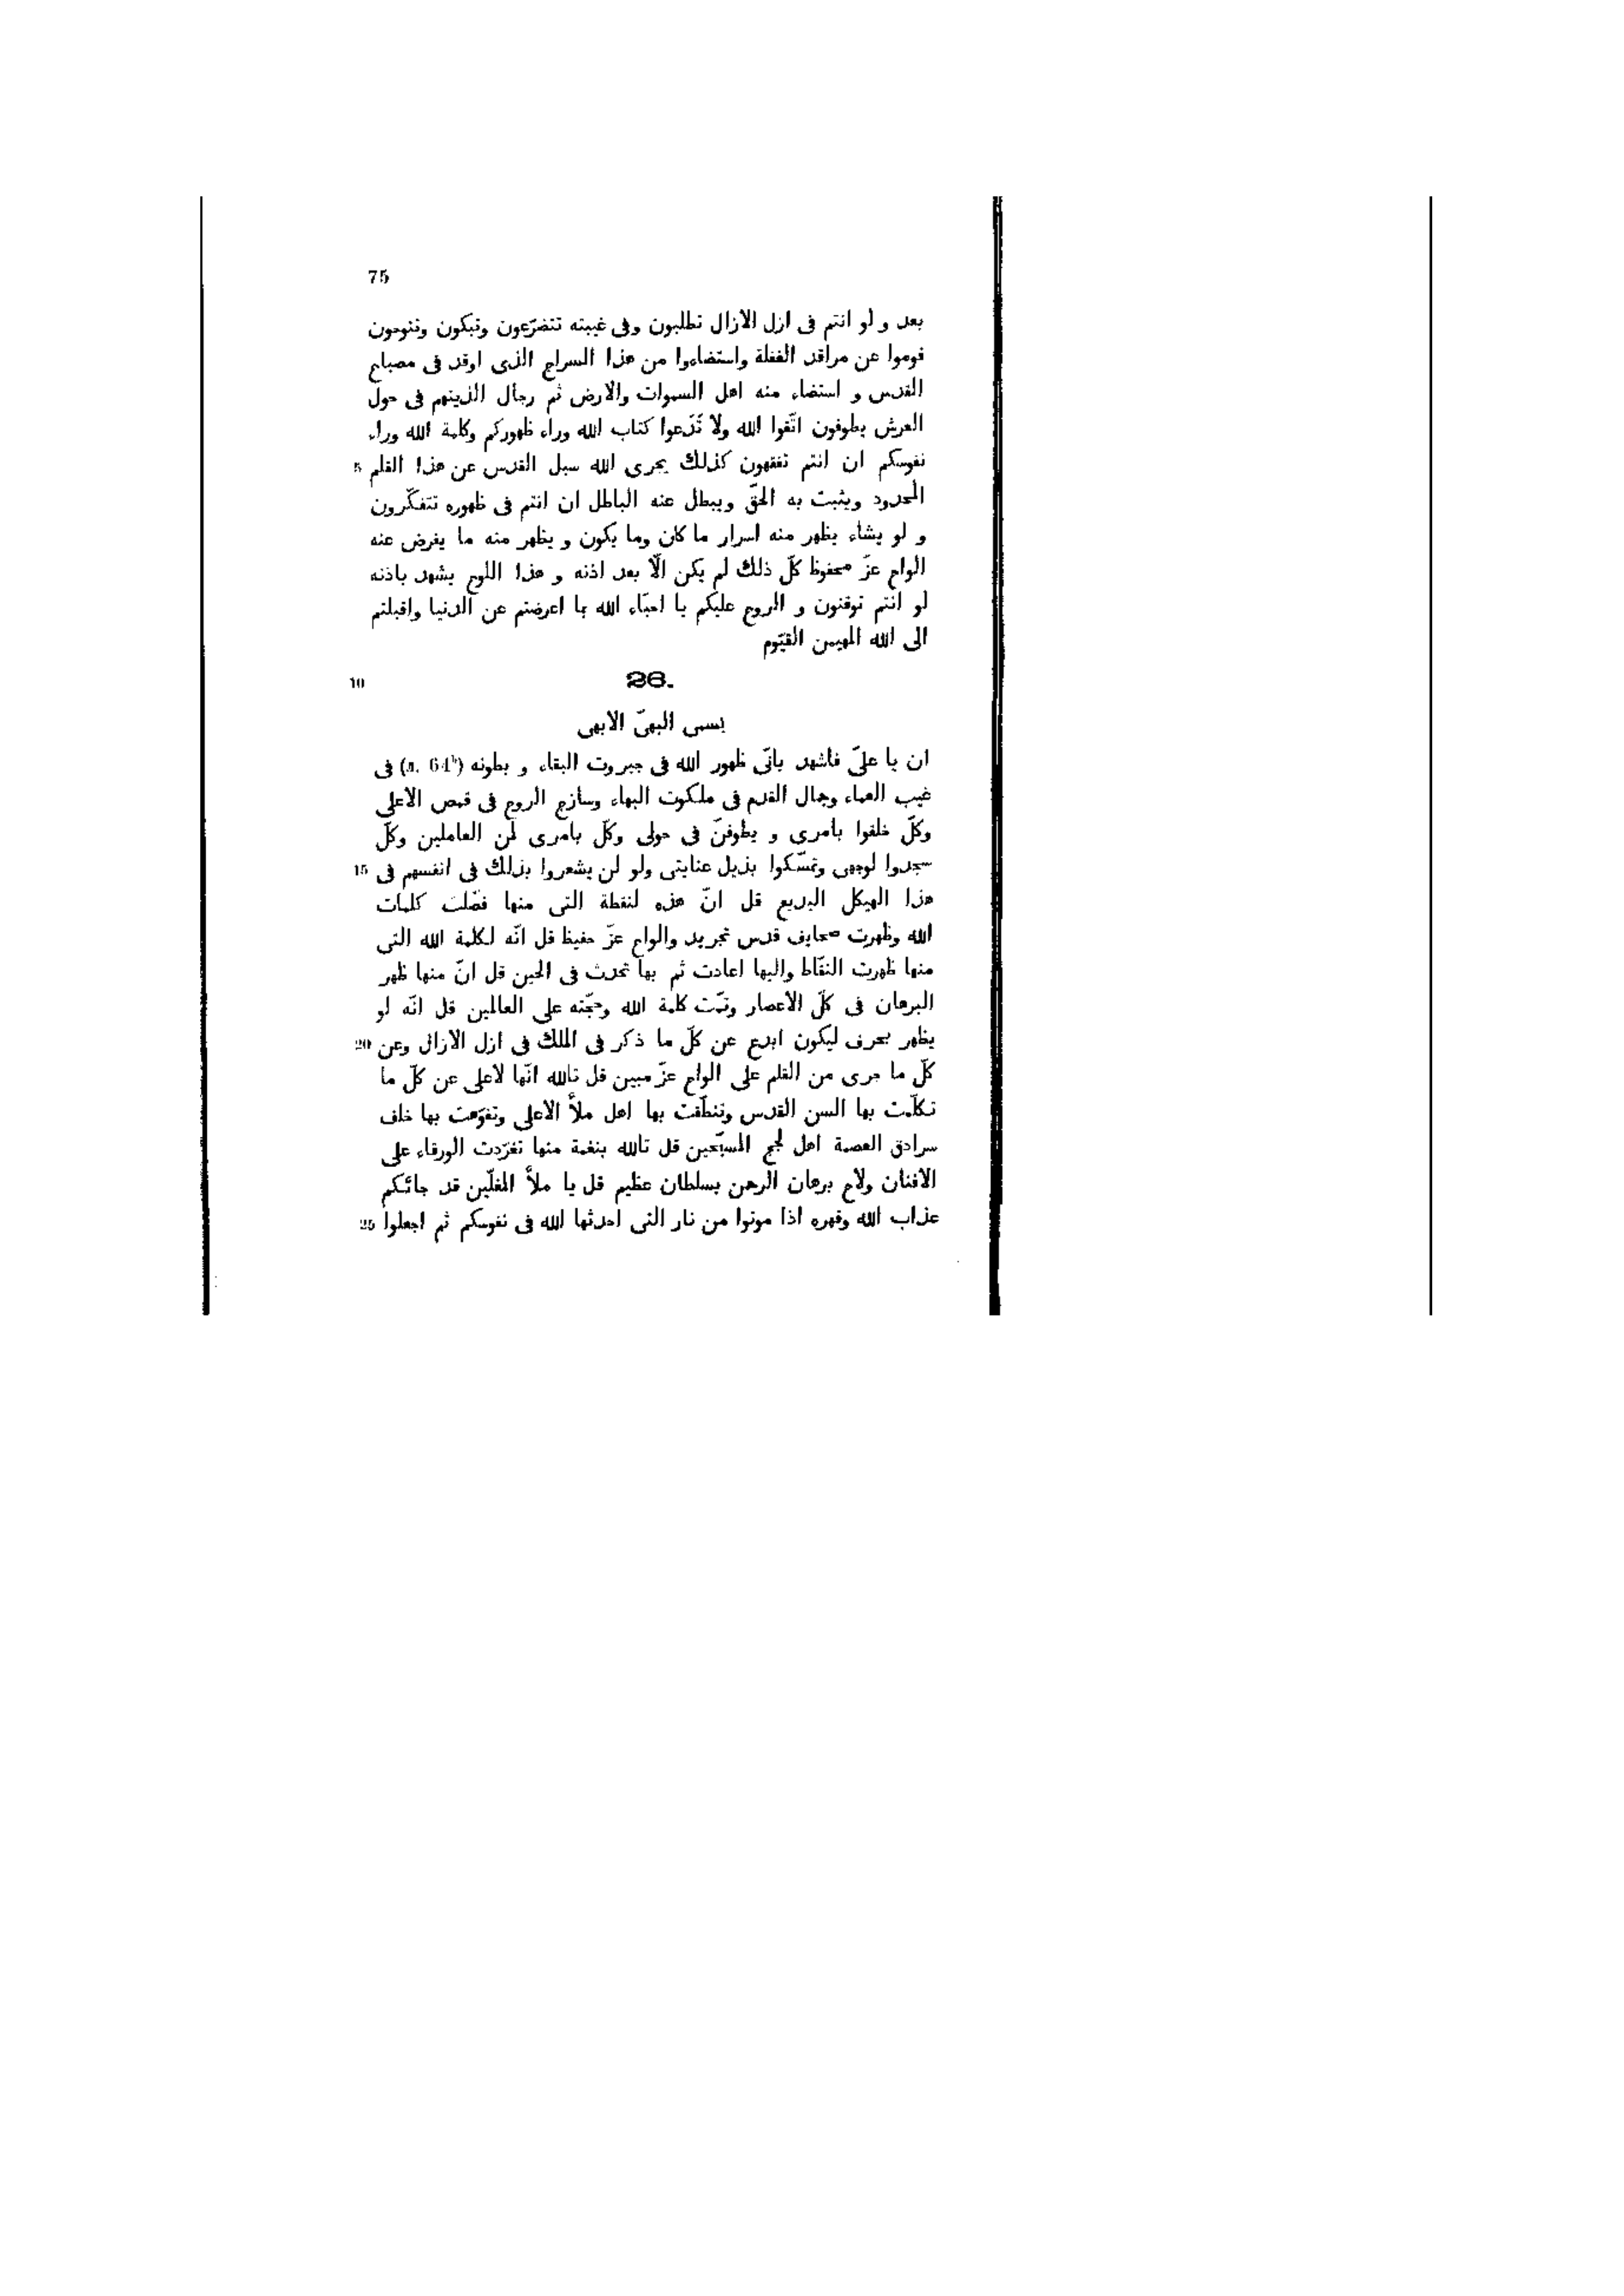 75
بعد و لو انتم فى ازل الازال تطلبون وفى غيبته تتضرّعون وتبكون وتنوحون
قوموا عن مراقد الغفلة واستضاءوا من هذا السراج الذى اوقد فى مصباح
القدس و استضاء منه اهل السموات والارض ثم رجال الذينهم فى حول
العرش يطوفون اتّقوا الله ولا تَدَعوا كتاب الله وراء ظهوركم وكلمة الله وراء
نفوسكم ان انتم تفقهون كذلك يجرى الله سبل القدس عن هذا القلم 5
المحدود ويثبت به الحقّ ويبطل عنه الباطل ان انتم فى ظهوره تتفكّرون
و لو يشاء يظهر منه اسرار ما كان وما يكون و يظهر منه ما يفرض عنه
الواح عزّ محفوظ كلّ ذلك لم يكن الّا بعد اذنه و هذا اللوح يشهد باذنه
لو انتم توقنون و الروح عليكم يا احبّاء الله بما اعرضتم عن الدنيا واقبلتم
الى الله المهيمن القيّوم
26. 10
بسمى البهىّ الابهى
ان يا علىّ فاشهد بانّى ظهور الله فى جبروت البقاء و بطونه (a. 64b) فى
غيب العماء وجمال القدم فى ملكوت البهاء وسازج الروح فى قمص الاعلى
وكلّ خلقوا بامرى و يطوفنّ فى حولى وكلّ بامرى لمن العاملين وكلّ
سجدوا لوجهى وتمسّكوا بذيل عنايتى ولو لن يشعروا بذلك فى انفسهم فى 15
هذا الهيكل البديع قل انّ هذه لنقطة التى منها فصّلت كلمات
الله وظهرت صحايف قدس تجريد والواح عزّ حفيظ قل انّه لكلمة الله التى
منها ظهرت النقّاط واليها اعادت ثم بها تحدث فى الحين قل انّ منها ظهر
البرهان فى كلّ الاعصار وتمّت كلمة الله وحجّته على العالمين قل انّه لو
يظهر بحرف ليكون ابدع عن كلّ ما ذكر فى الملك فى ازل الازال وعن 20
كلّ ما جرى من القلم على الواح عزّ مبين قل تالله انّها لاعلى عن كلّ ما
تكلّمت بها السن القدس وتنطّقت بها اهل ملأ الاعلى وتفوّهت بها خلف
سرادق العصمة اهل لجج المسبّحين قل تالله بنغمة منها تغرّدت الورقاء على
الافنان ولاح برهان الرحمن بسلطان عظيم قل يا ملأ المغلّين قد جائكم
عذاب الله وقهره اذا موتوا من نار التى احدثها الله فى نفوسكم ثم اجعلوا 25